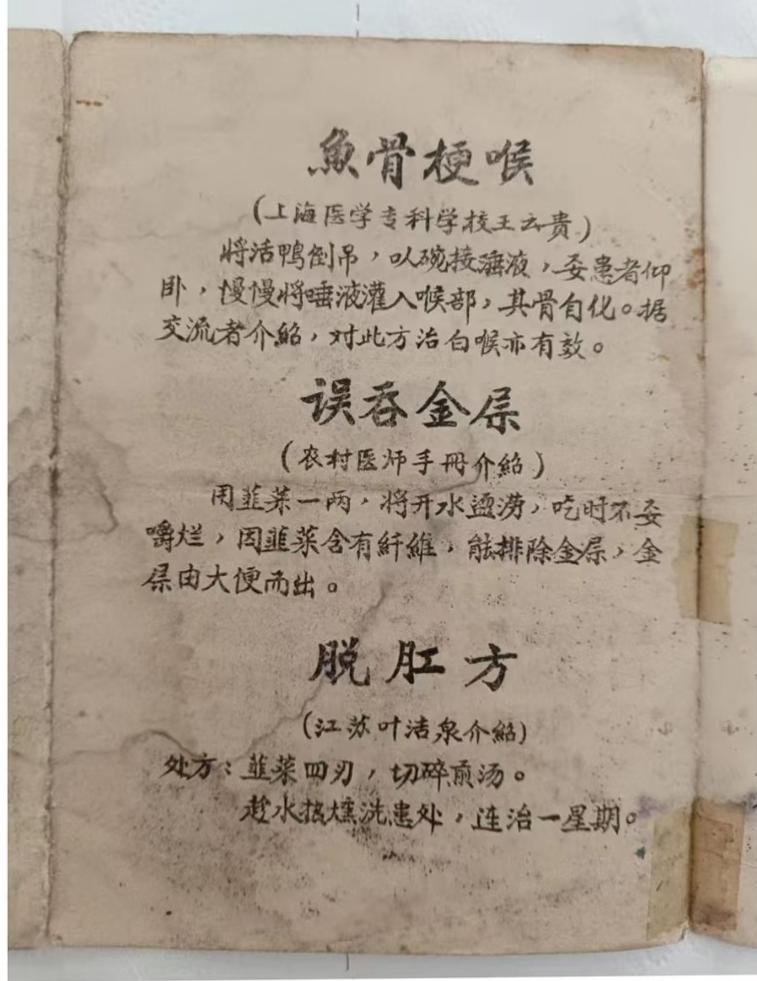 魚骨梗喉
(上海医学专科学校王云贵)
将活鸭倒吊，以碗接唾液，要患者仰
卧，慢慢将唾液灌入喉部，其骨自化。据
交流者介紹，对此方治白喉亦有效。
误吞金屎
(农村医师手册介紹)
用韮菜一两，将开水燙涝，吃时不要
嚼烂，因韮菜含有纤維，能排除金屎，金
屎由大便而出。
脱肛方
(江苏叶洁泉介紹)
处方：韮菜四刃，切碎煎汤。
趁水热燻洗患处，连治一星期。